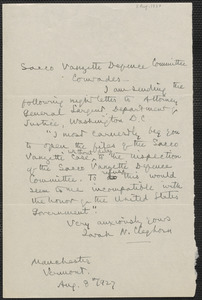 Sacco Vanzetti Defense Committee
Comrades
I am sending the
following night letter to Attorney
General Sargent, Department of
Justice, Washington D.C.
"I most earnestly beg you
to open the files of the Sacco
Vanzetti Case, without delay to the inspection
of the Sacco Vanzetti Defense
Committee. To refuse this would
seem to me incompatible with
the honor of the United States
Government"
Very anxiously yours
Sarah N. Cleghorn
Manchester
Vermont.
Aug. 8 1927